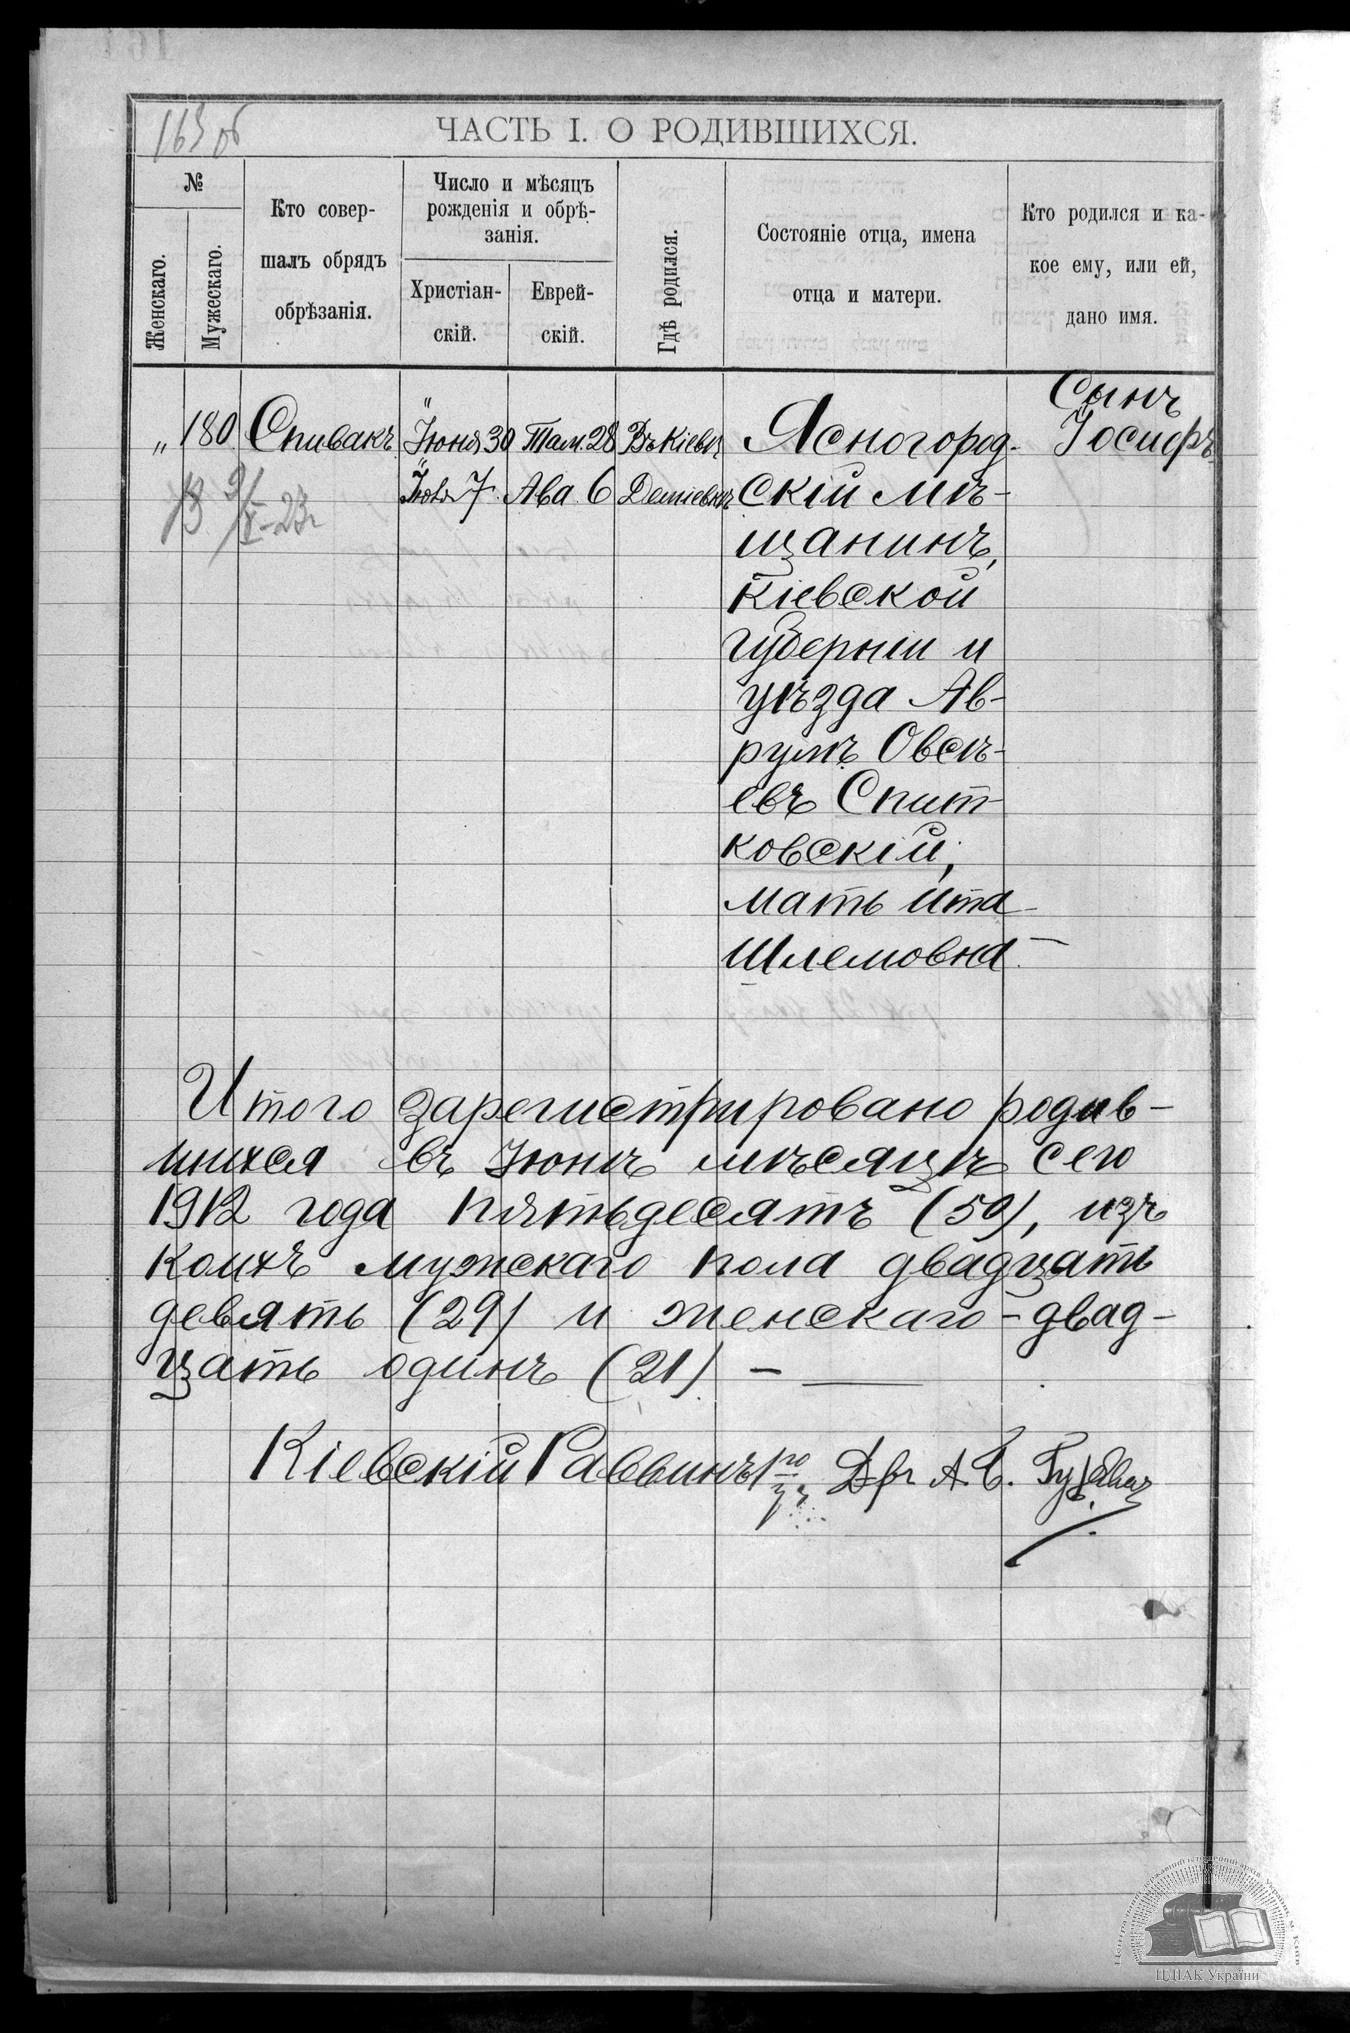 163 об
ЧАСТЬ I. О РОДИВШИХСЯ.
№
Женскаго.
Мужескаго.
Кто совер-
шалъ обрядъ
обрѣзанія.
Число и мѣсяцъ
рожденія и обрѣ-
занія.
Христіан-
скій.
Еврей-
скій.
Гдѣ родился.
Состояніе отца, имена
отца и матери.
Кто родился и ка-
кое ему, или ей,
дано имя.
„ 180 Спивакъ Іюня 30 Там. 28 Въ Кіевѣ
Іюля 7 Ава 6 Деміевкѣ
Ясногород-
скій мѣ-
щанинъ,
Кіевской
губерніи и
уѣзда Ав-
румъ Овсѣ-
евъ Спит-
ковскій,
мать Ита
Шлемовна -
Сынъ
Іосифъ
Итого зарегистрировано родив-
шихся въ Іюнѣ мѣсяцѣ сего
1912 года пятьдесятъ (50), изъ
коихъ мужскаго пола двадцать
девять (29) и женскаго - двад-
цать одинъ (21) -
Кіевскій Раввинъ
ЦДІАК України